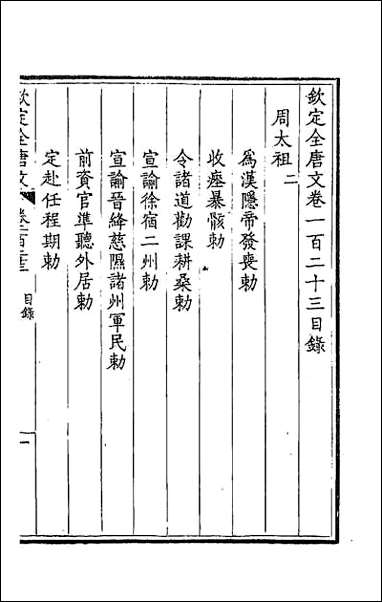 欽定全唐文卷一百二十三目錄
周太祖二
為漢隱帝發喪勅
收瘞暴骸勅
令諸道勸課耕桑勅
宣諭徐宿二州勅
宣諭晉絳慈隰諸州軍民勅
前資官準聽外居勅
定赴任程期勅
欽定全唐文 卷一百二十三 目錄 一